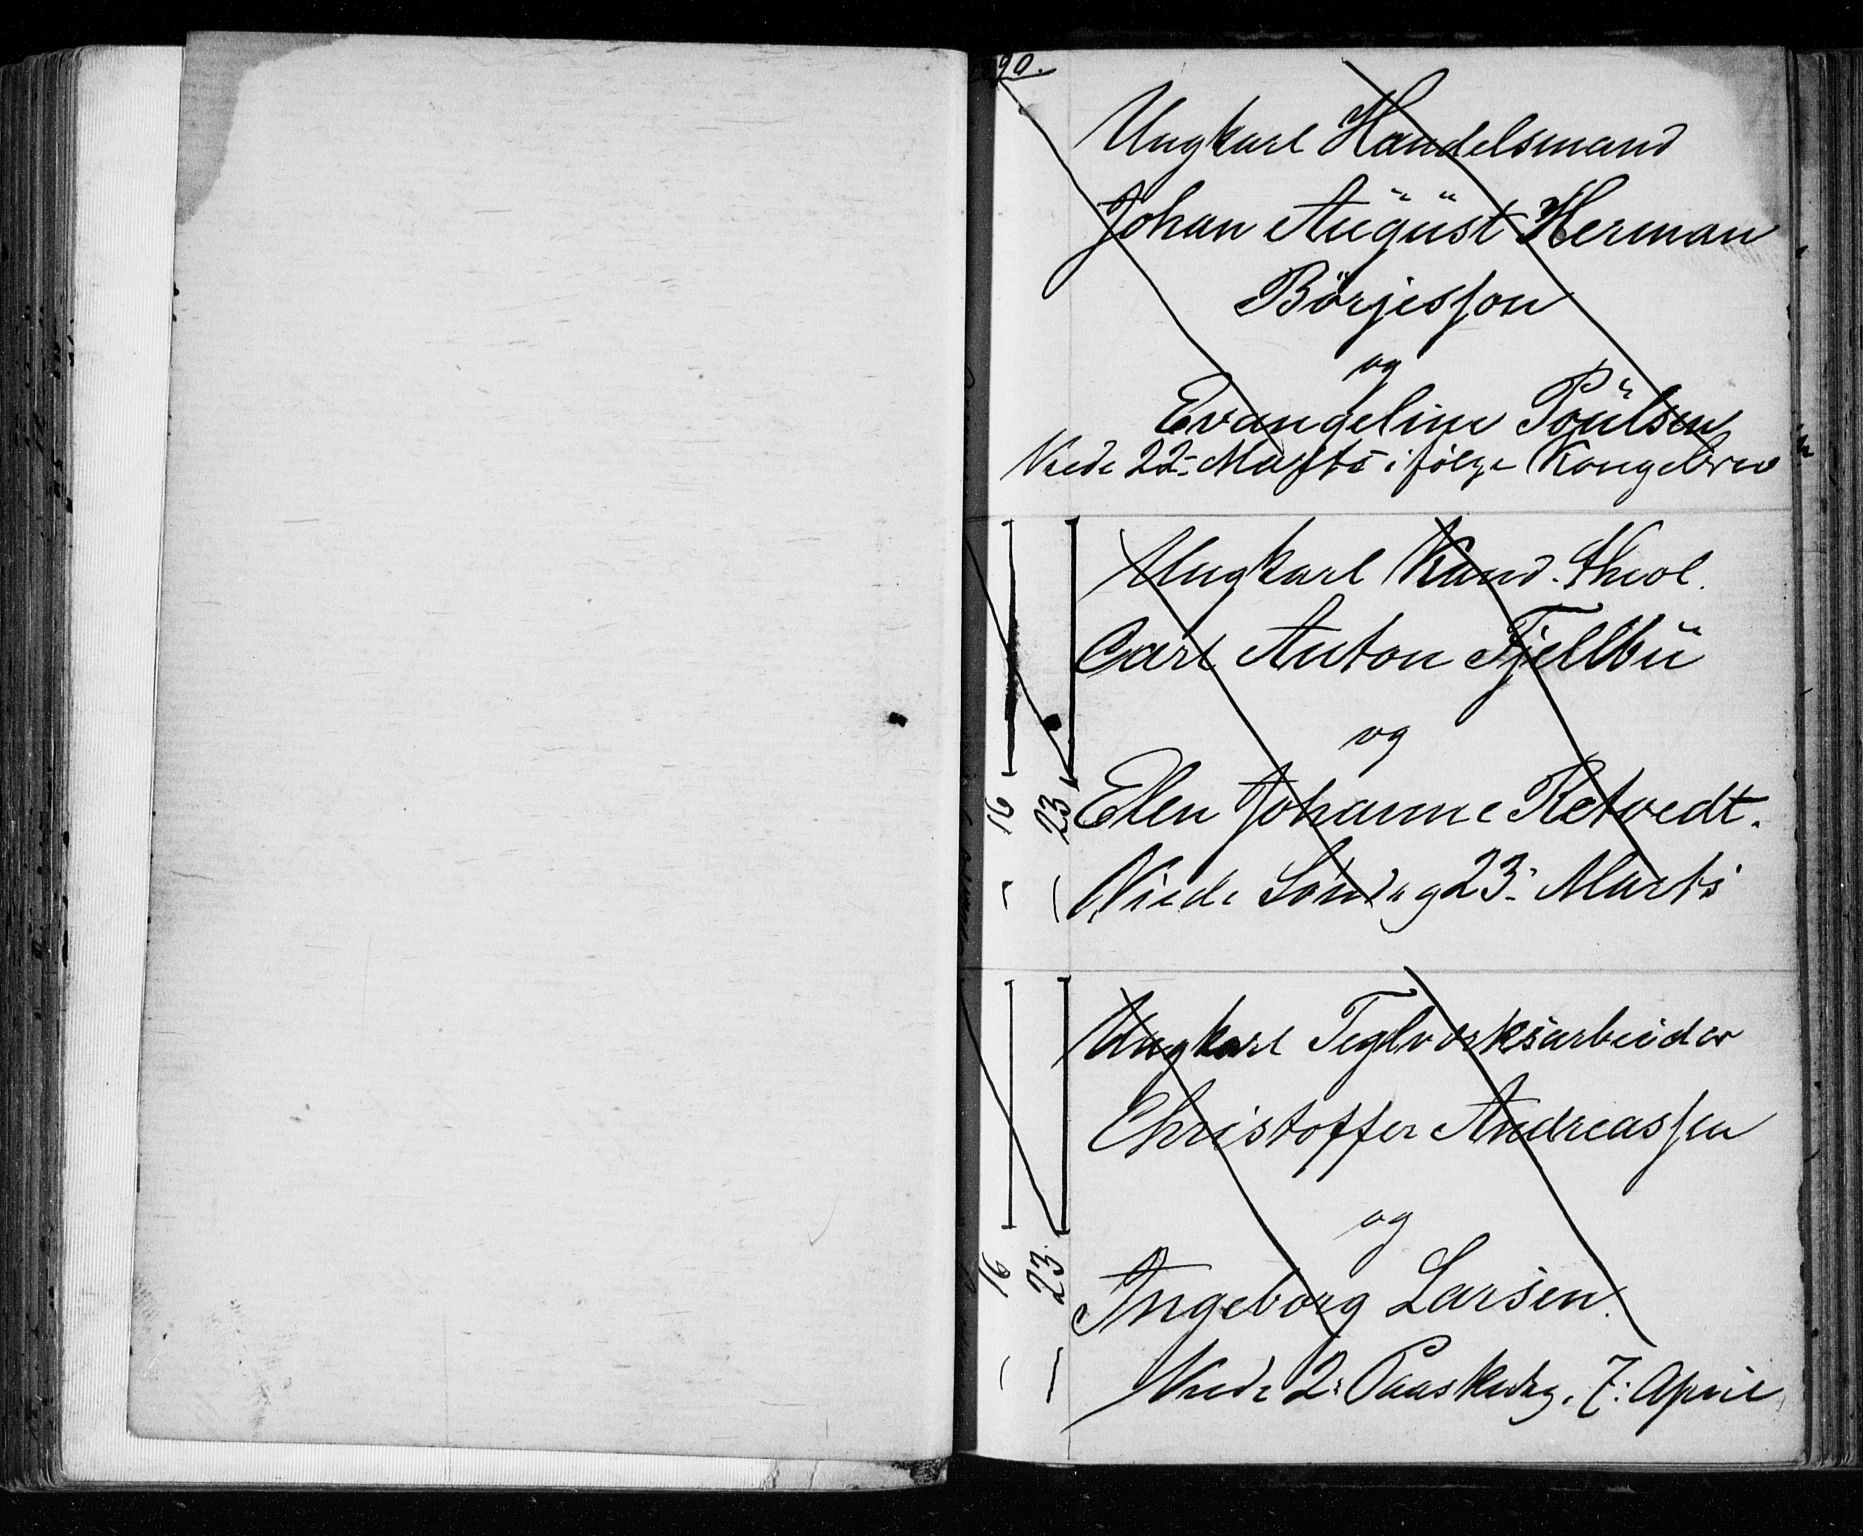 90.
Ungkarl Handelsmand
Johan August Herman
Börjesson
og
Evangeline Poulsen
Viede 22- Marts ifølge Kongebrev
Ungkarl Kand. theol.
Carl Anton Fjellbu
og
Elen Johanne Retvedt.
Viede Søndag 23: Marts
16
23
Ungkarl Teglværksarbeider
Christoffer Andreassen
og
Ingeborg Larsen.
Viede 2: Paaskedag, 7: April
16
23